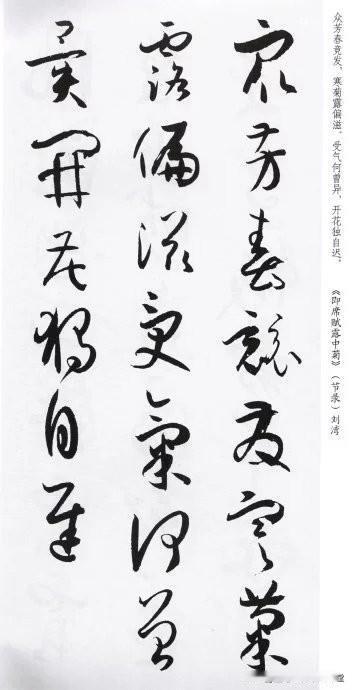 众芳春竞发，寒菊露偏滋。受气何曾异，开花独自迟。
《即席赋露中菊》（节录）刘湾
眾芳春競發寒菊
露偏滋受氣何曾
異開花獨自遲